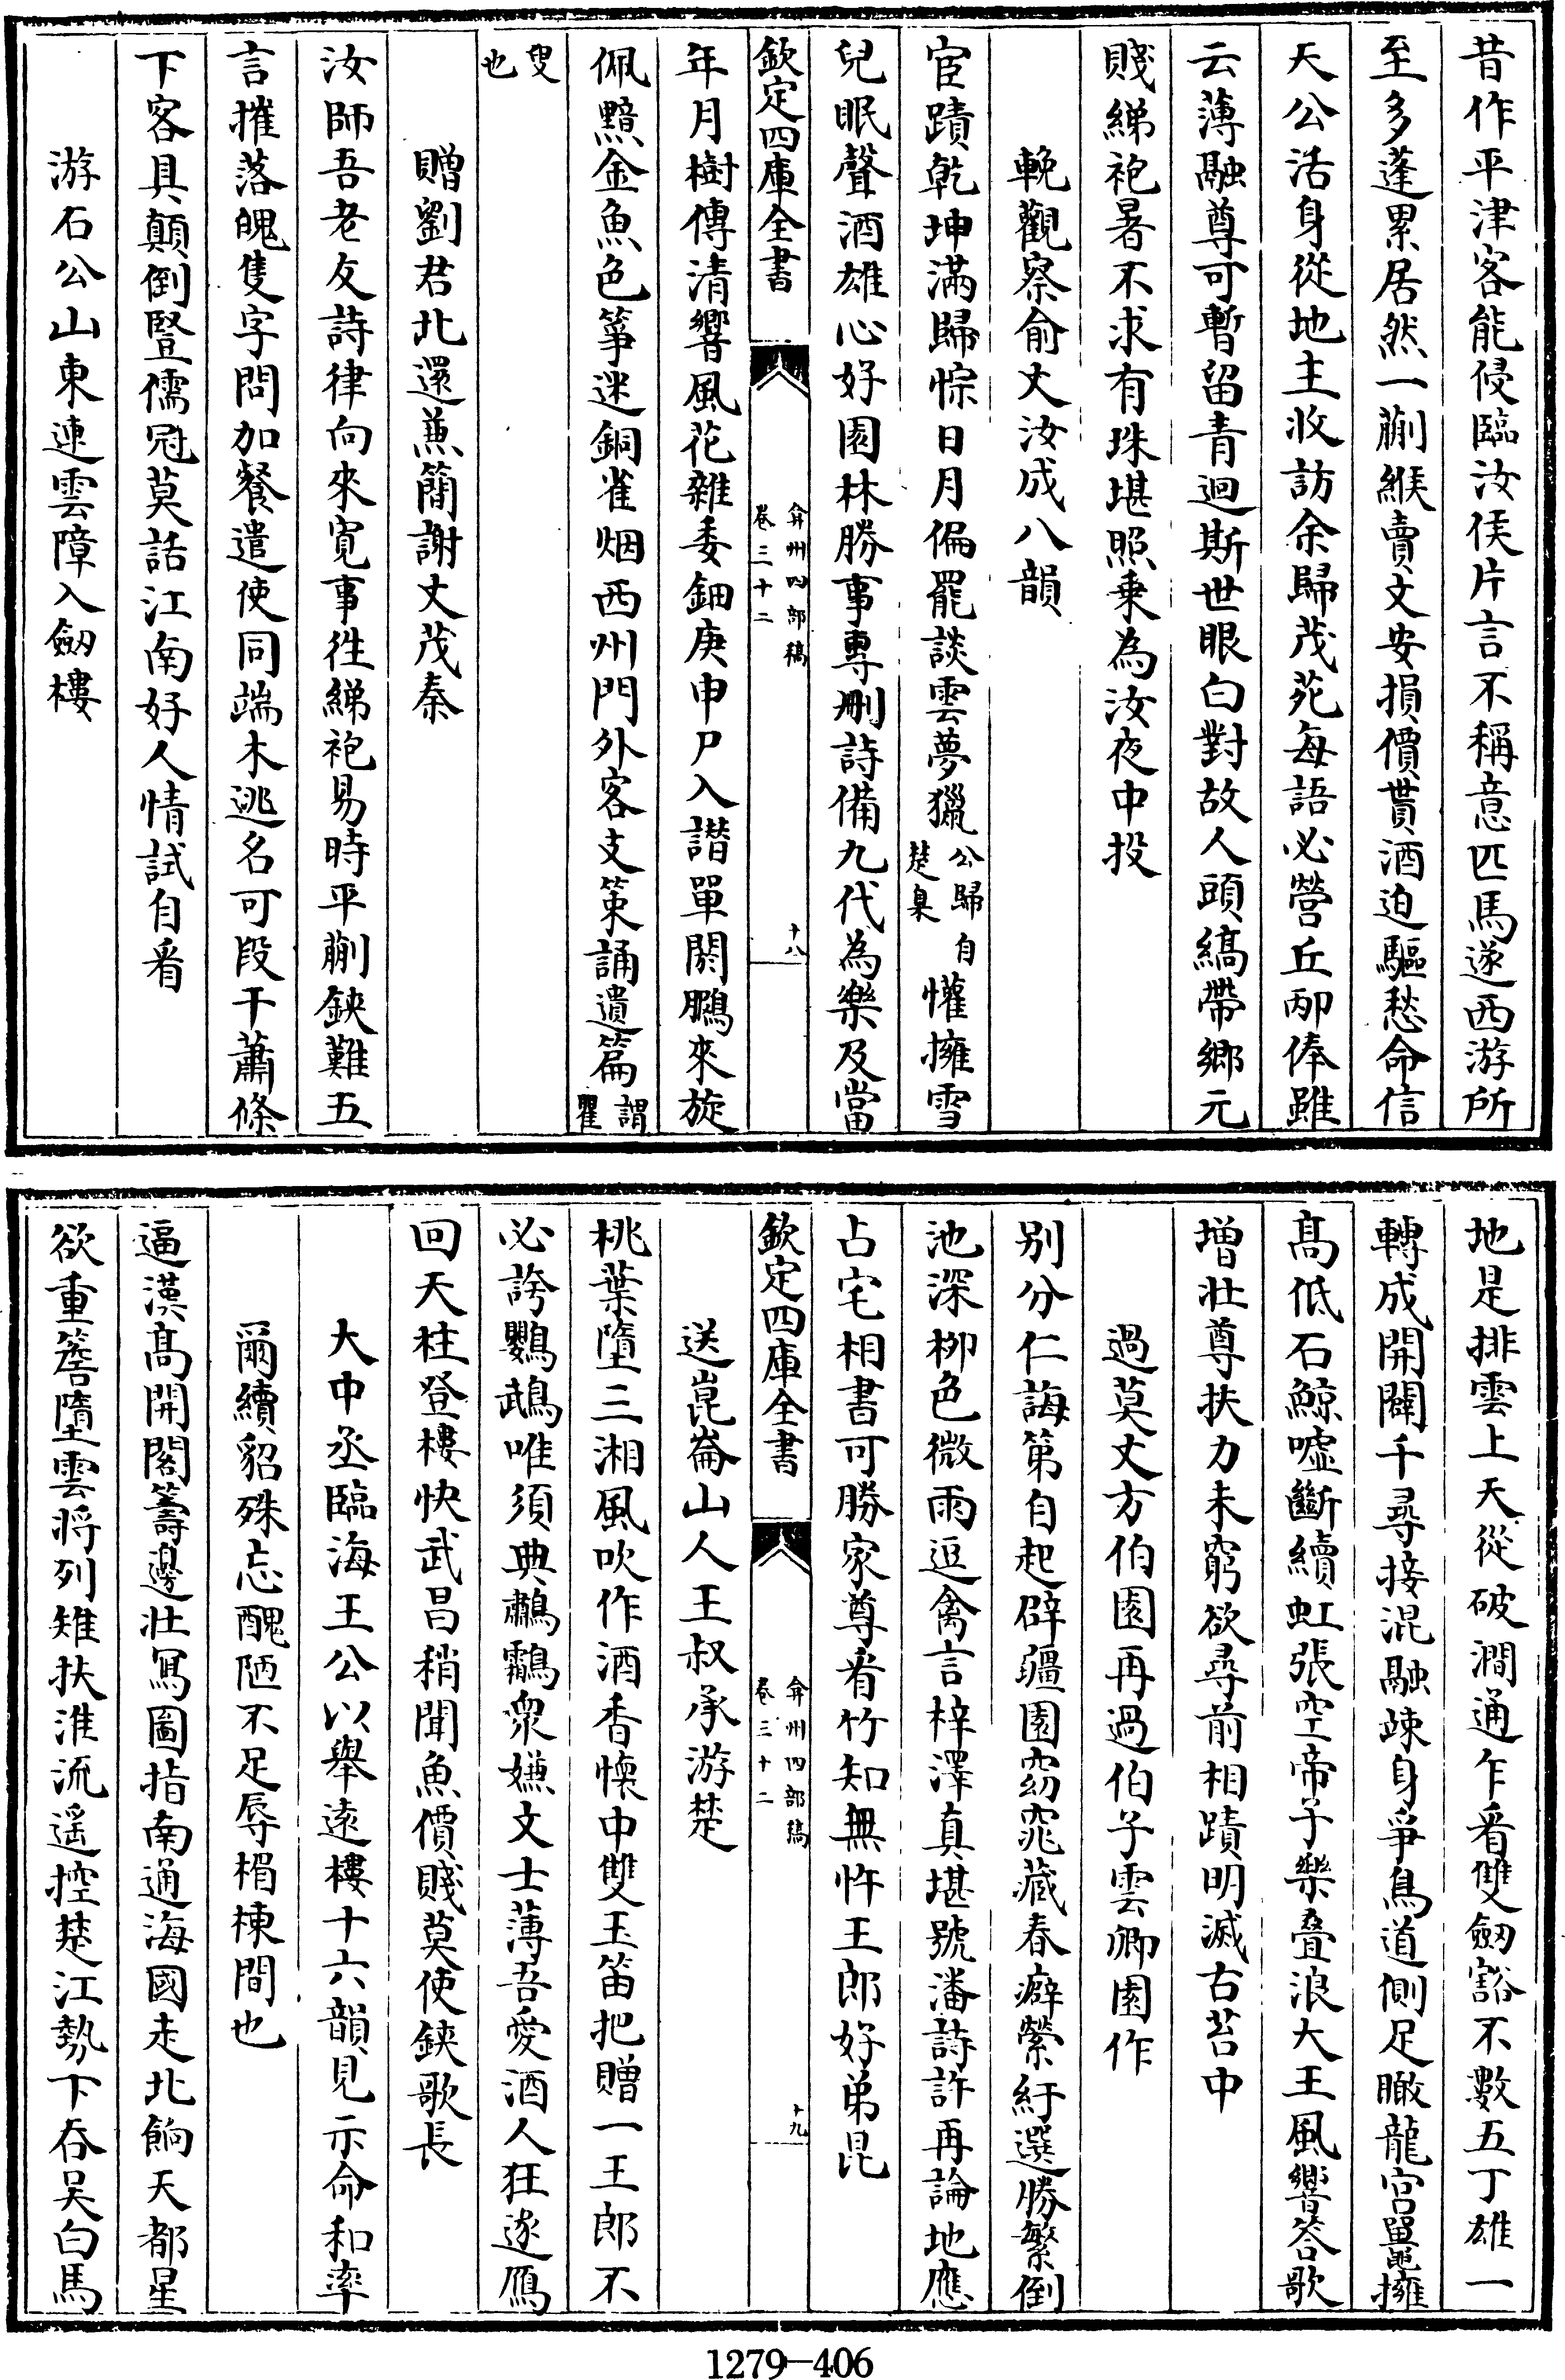 昔作平津客能侵臨汝侯片言不稱意匹馬遂西游所
至多蓬累居然一蒯緱賣文安損價貰酒迫驅愁命信
天公活身從地主收訪余歸茂苑每語必營丘邴俸雖
云薄融尊可暫留青迴斯世眼白對故人頭縞帶鄉元
賤綈袍暑不求有珠堪照乗為汝夜中投
輓觀察俞丈汝成八韻
宦蹟乾坤滿歸悰日月偏罷談雲夢獵公歸自楚臬懽擁雪
兒眠聲酒雄心好園林勝事專刪詩備九代為樂及當
欽定四庫全書
弇州四部稿
卷三十二
十八
年月樹傳清響風花雜委鈿庚申尸入譛單閼鵩來旋
佩黯金魚色箏迷銅雀烟西州門外客支䇿誦遺篇謂瞿
叟也
贈劉君北還兼簡謝丈茂秦
汝師吾老友詩律向來寛事徃綈袍易時平蒯鋏難五
言摧落魄隻字問加餐遣使同端木逃名可段干蕭條
下客具顛倒豎儒冠莫話江南好人情試自看
游石公山東連雲障入劔樓
地是排雲上天從破澗通乍看雙劔豁不數五丁雄一
轉成開闢千尋接混融竦身爭鳥道側足瞰龍宫鼉擁
髙低石鯨噓斷續虹張空帝子樂叠浪大王風響答歌
增壯尊扶力未窮欲尋前相蹟明滅古苔中
過莫丈方伯園再過伯子雲卿園作
别分仁誨第自起辟疆園窈窕藏春癖縈紆選勝繁倒
池深栁色微雨逗禽言梓澤真堪號潘詩許再論地應
占宅相書可勝家尊看竹知無忤王郎好弟昆
欽定四庫全書
弇州四部稿
卷三十二
十九
送崑崙山人王叔承游楚
桃葉墮三湘風吹作酒香懐中雙玉笛把贈一王郎不
必誇鸚鵡唯須典鷫鸘衆嫌文士薄吾愛酒人狂逐鴈
回天柱登樓快武昌稍聞魚價賤莫使鋏歌長
大中丞臨海王公以舉遠樓十六韻見示命和率
爾續貂殊忘醜陋不足辱楣棟間也
逼漢髙開閣籌邊壯冩圖指南通海國走北餉天都星
欲重簷墮雲將列雉扶淮流遥控楚江勢下吞吴白馬
1279—406